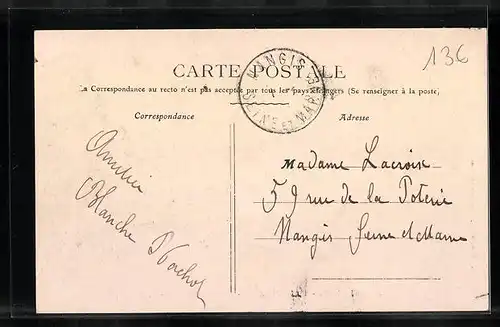 136
CARTE POSTALE
La Correspondance au recto n'est pas acceptée par tous les pays étrangers (Se renseigner à la poste)
NANGIS
SEINE ET MARNE
Correspondance
Adresse
Amitiés
Blanche
Madame Lacroix
59 rue de la Poterie
Nangis Seine et Marne